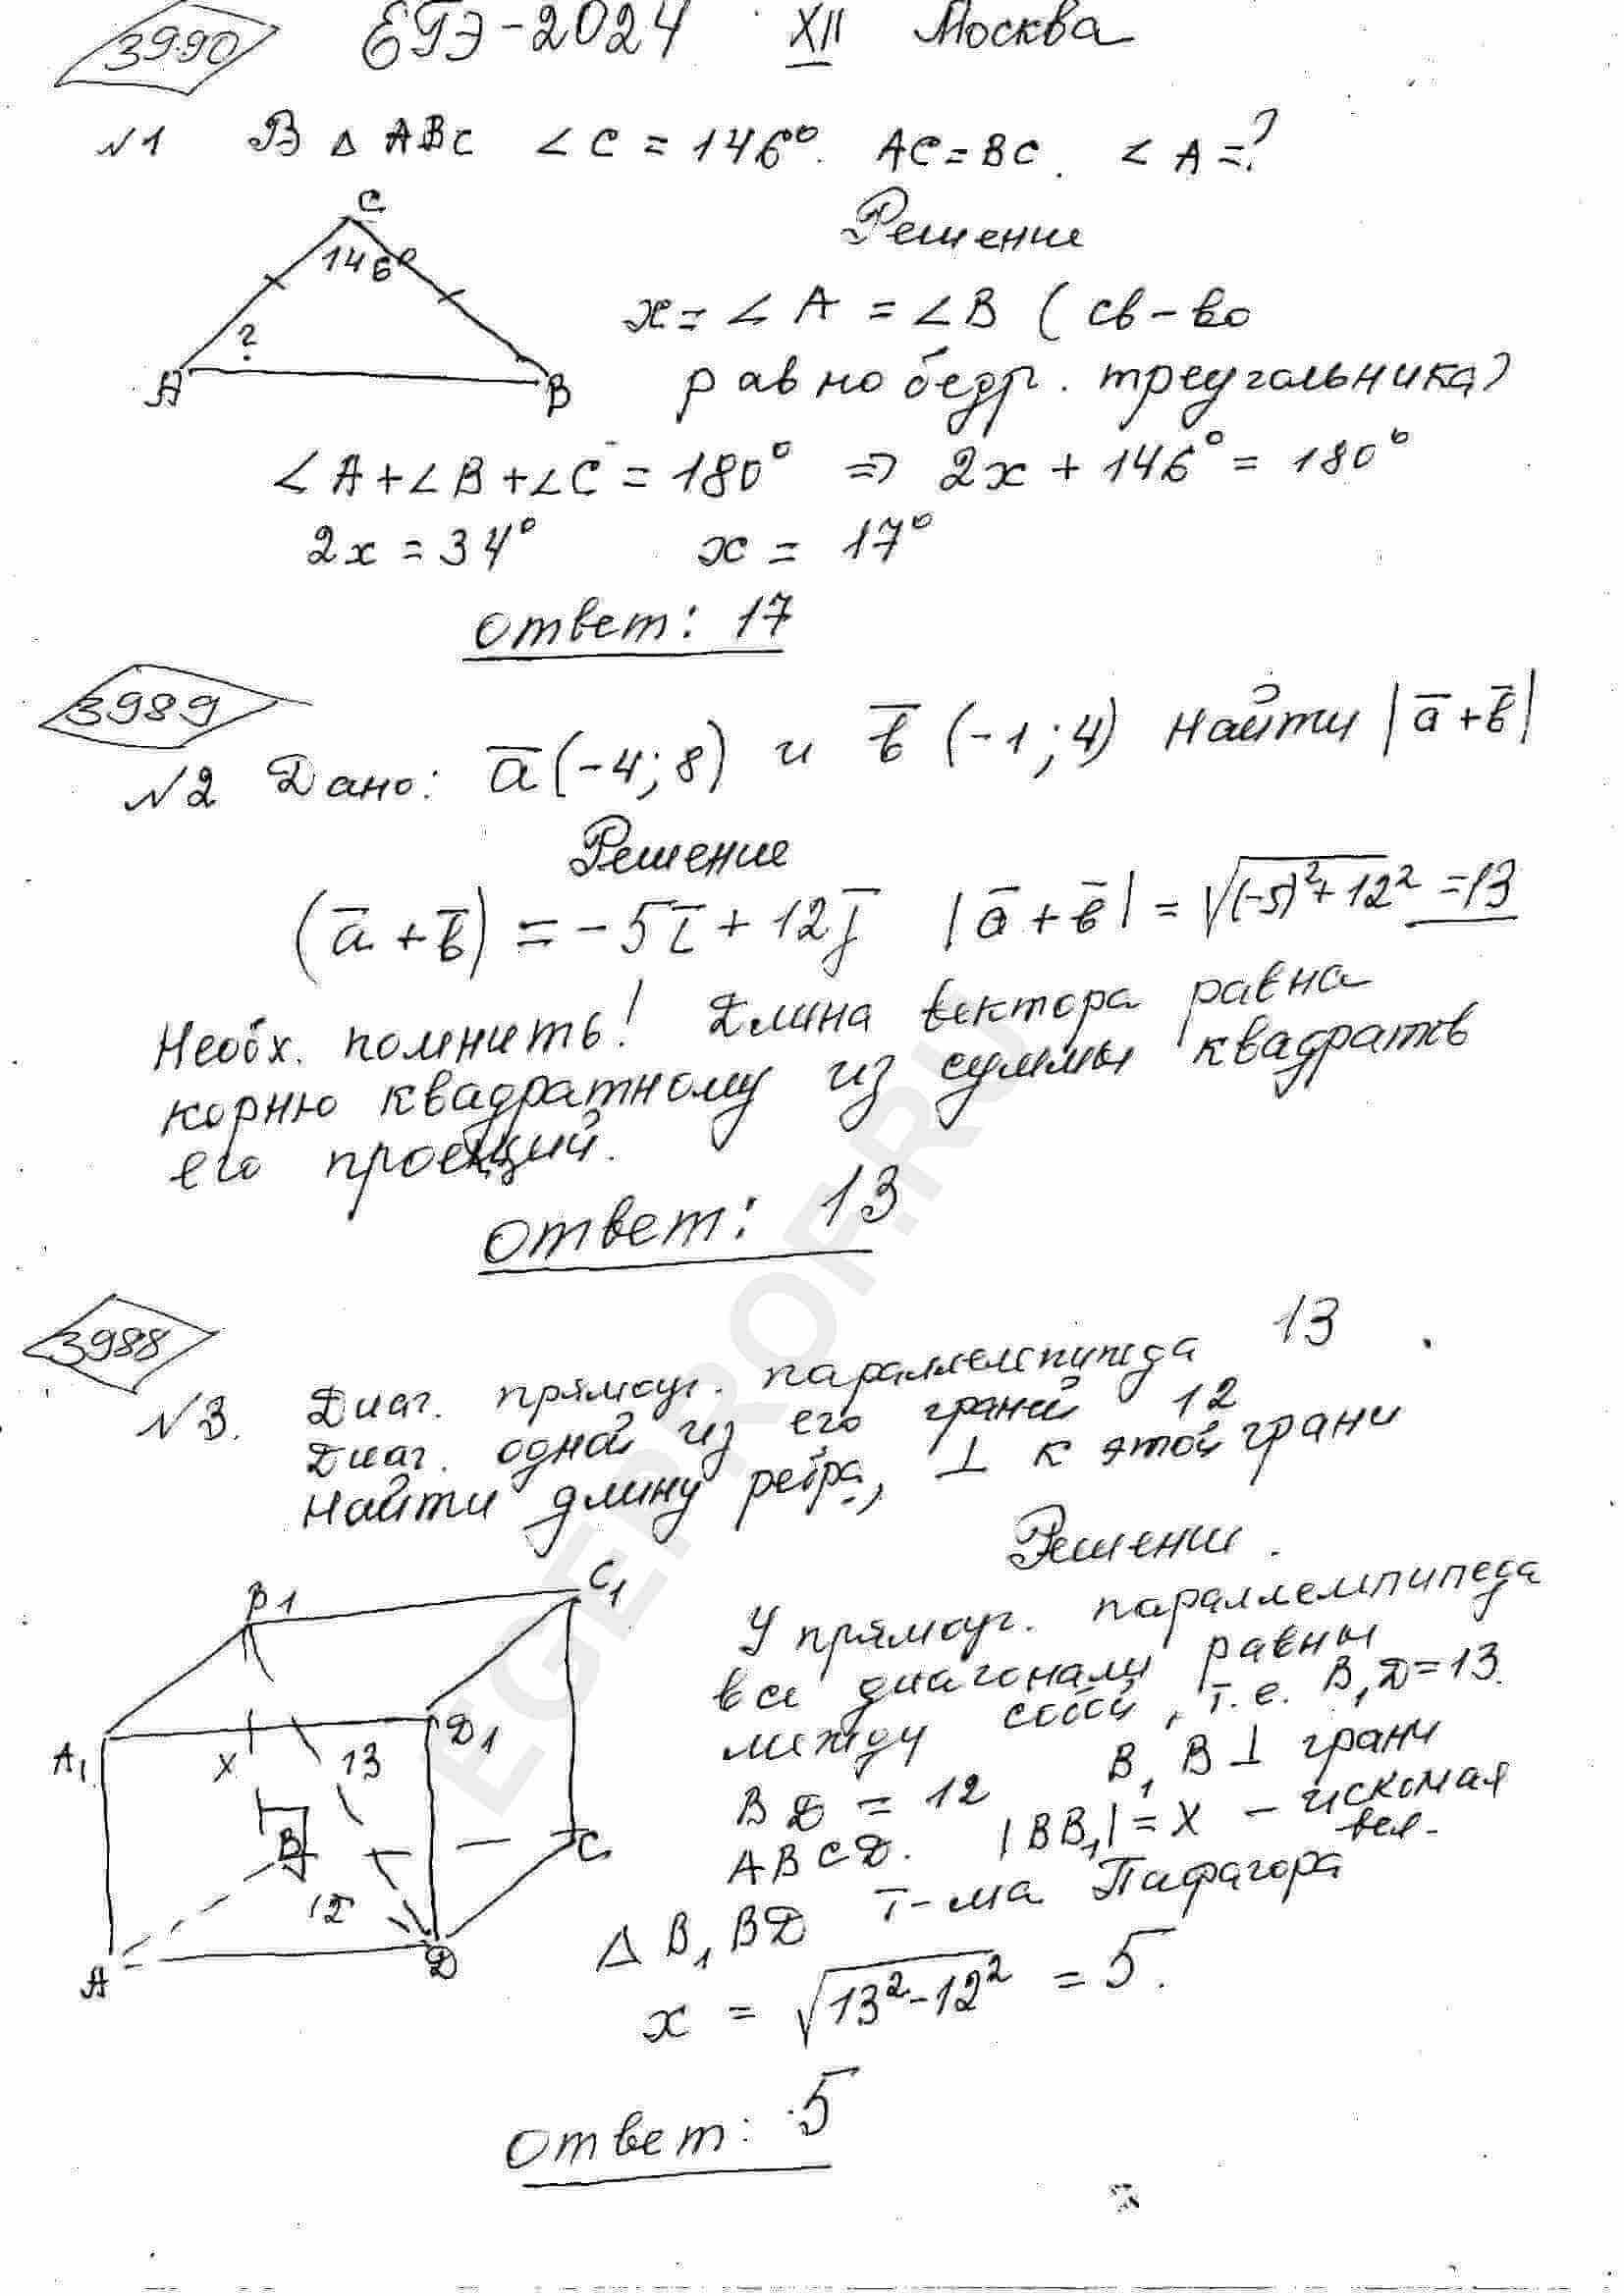 3990 ЕГЭ-2024 XII Москва
№1 В △ ABC ∠C = 146°. AC = BC. ∠A = ?
C
146°
?
A
B
Решение
x = ∠A = ∠B (св-во
равнобедр. треугольника)
∠A + ∠B + ∠C = 180° ⇒ 2x + 146° = 180°
2x = 34° x = 17°
Ответ: 17
3989
№2 Дано: a̅(-4; 8) и b̅(-1; 4) Найти |a̅ + b̅|
Решение
(a̅ + b̅) = -5i̅ + 12j̅ |a̅ + b̅| = √((-5)² + 12²) = 13
Необх. помнить! Длина вектора равна
корню квадратному из суммы квадратов
его проекций.
Ответ: 13
3988
№3. Диаг. прямоуг. параллелепипеда 13.
Диаг. одной из его граней 12
Найти длину ребра, ⊥ к этой грани
Решение.
B1
C1
A1
D1
X
13
B
C
12
A
D
У прямоуг. параллелепипеда
все диагонали равны
между собой, т.е. B₁D = 13.
BD = 12 B₁B ⊥ грани
ABCD. |BB₁| = X - искомая
вел.
△ B₁BD т-ма Пифагора
x = √(13² - 12²) = 5.
Ответ: 5
EGEPROF.RU